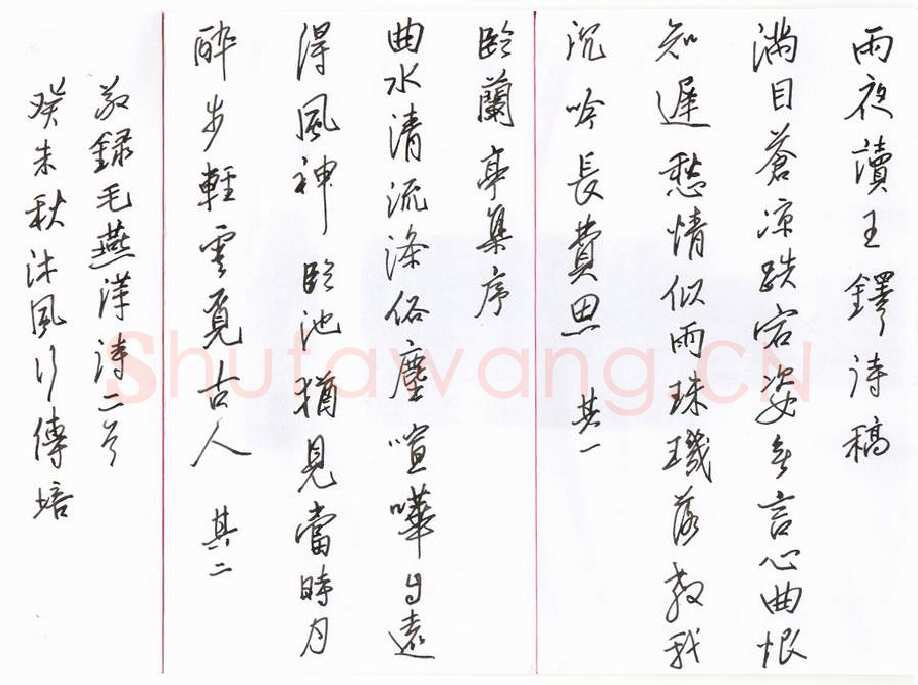 雨夜讀王鐸诗稿
滿目蒼凉跌宕姿無言心曲恨
知遲愁情似雨珠璣落教我
沉吟長費思 其一
臨蘭亭集序
曲水清流滌俗塵喧嘩自遠
得風神臨池猶見當時月
醉步輕雲覓古人 其二
敬録毛燕萍诗二首
癸未秋沐風行傳培
Shufawang.CN